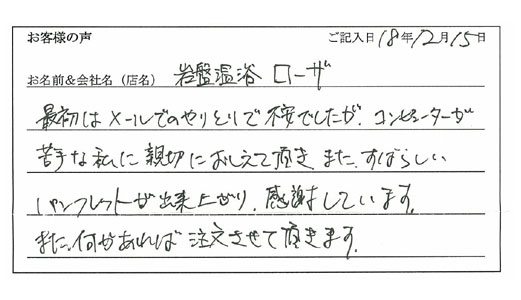 お客様の声 ご記入日 18年12月15日
お名前&会社名(店名) 岩盤温浴 ローザ
最初はメールでのやりとりで不安でしたが、コンピューターが
苦手な私に親切におしえて頂き また、すばらしい
パンフレットが出来上がり、感謝しています。
また、何かあれば 注文させて頂きます。